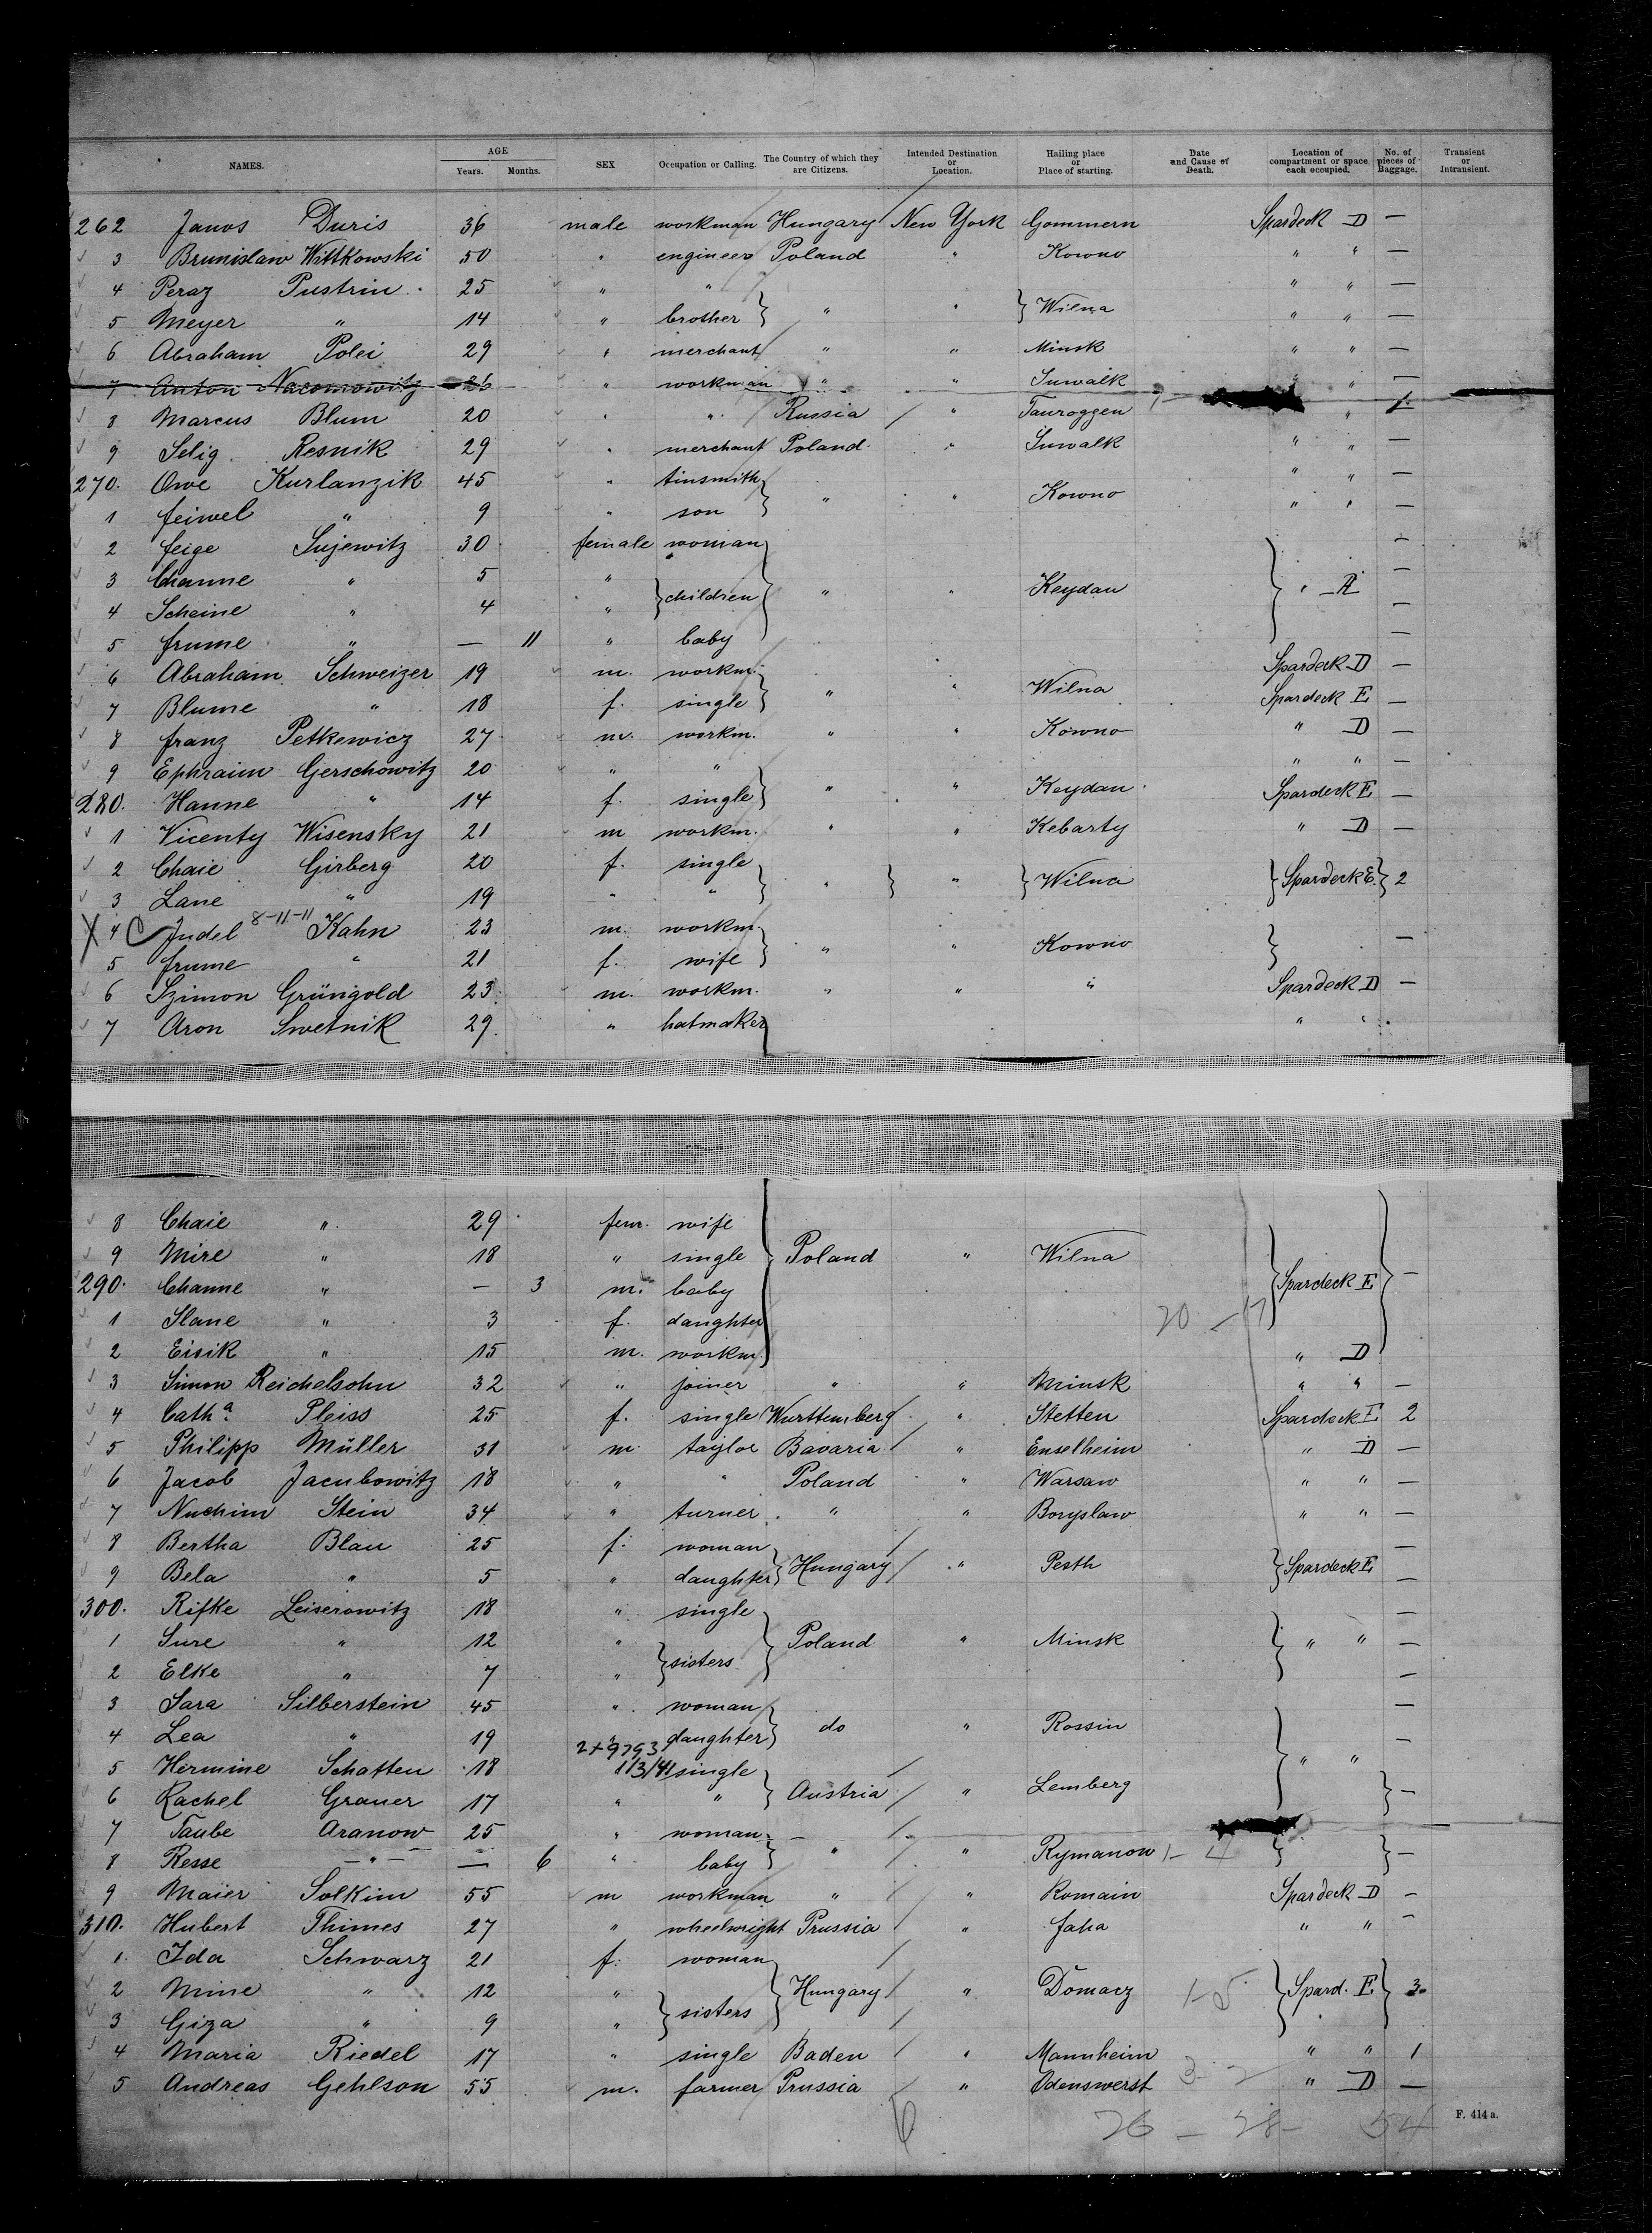 NAMES. AGE Years. Months. SEX Occupation or Calling. The Country of which they are Citizens. Intended Destination or Location. Hailing place or Place of starting. Date and Cause of Death. Location of compartment or space each occupied. No. of pieces of Baggage. Transient or Intransient.
262 Janos Duris 36 male workman Hungary New York Gommern Spardeck D —
3 Brunislaw Wittkowski 50 " engineer Poland " Kowno " " —
4 Peraz Pustrin 25 " " " " —
5 Meyer " 14 " brother } " " } Wilna " " —
6 Abraham Polei 29 " merchant " " Minsk " " —
7 Anton Nacomowitz 26 " workman " " Suwalk " " —
8 Marcus Blum 20 " " Russia " Tauroggen " 1
9 Selig Resnik 29 " merchant Poland " Suwalk " " —
270. Owe Kurlanzik 45 " tinsmith " " —
1 feiwel " 9 " son } " " Kowno " " —
2 feige Sujewitz 30 female woman —
3 Channe " 5 " —
4 Scheine " 4 " } children { " " Keydan } " A —
5 frume " — 11 " baby —
6 Abraham Schweizer 19 m. workm. Spardeck D —
7 Blume " 18 f. single } " " Wilna Spardeck E —
8 franz Petkewicz 27 m. workm. " " Kowno " D —
9 Ephraim Gerschowitz 20 " " " " —
280. Hanne " 14 f. single } " " Keydan Spardeck E —
1 Vicenty Wisensky 21 m workm. " " Kebarty " D —
2 Chaie Girberg 20 f. single
3 Lane " 19 " " } " } " } Wilna } Spardeck E. } 2
X 4 C Judel 8-11-11 Kahn 23 m. workm.
5 frume " 21 f. wife } " " Kowno } —
6 Szimon Grüngold 23 m. workm. " " " Spardeck D —
7 Aron Swetnik 29. " hatmaker " "
8 Chaie " 29 fem. wife
9 Mire " 18 " single } Poland " Wilna
290. Channe " — 3 m. baby } Spardeck E } —
1 Slane " 3 f. daughter 20 — 17
2 Eisik " 15 m. workm. " D
3 Simon Reichelsohn 32 " joiner " " Minsk " " —
4 Cath.a Pleiss 25 f. single Württemberg " Stetten Spardeck E 2
5 Philipp Müller 31 m. taylor Bavaria " Enselheim " D —
6 Jacob Jacubowitz 18 " " Poland " Warsaw " " —
7 Nuchim Stein 34 " turner " " Boryslaw " " —
8 Bertha Blau 25 f. woman —
9 Bela " 5 " daughter } Hungary " Pesth } Spardeck E —
300. Rifke Leiserowitz 18 " single —
1 Sure " 12 " } Poland " Minsk } " " —
2 Elke " 7 " } sisters —
3 Sara Silberstein 45 " woman —
4 Lea " 19 daughter } do " Rossin —
2 x 9793
5 Hermine Schatten 18 1/3/41 single } " "
6 Rachel Grauer 17 " " } Austria " Lemberg } —
7 Taube Aranow 25 " woman —
8 Resse — " — — 6 " baby } " " Rymanow 1 — 4 } } —
9 Maier Solkim 55 m workman " " Romain Spardeck D —
310. Hubert Thimes 27 " wheelwright Prussia " Jaha " " —
1. Ida Schwarz 21 f. woman
2 Mine " 12 " } Hungary " Domacz 1-5 } Spard. E } 3
3 Giza " 9 " } sisters
4 Maria Riedel 17 " single Baden " Mannheim " " 1
5 Andreas Gehlson 55 m. farmer Prussia " Odenswerst 3 - 2 " D —
F. 414 a.
26 — 28 — 54